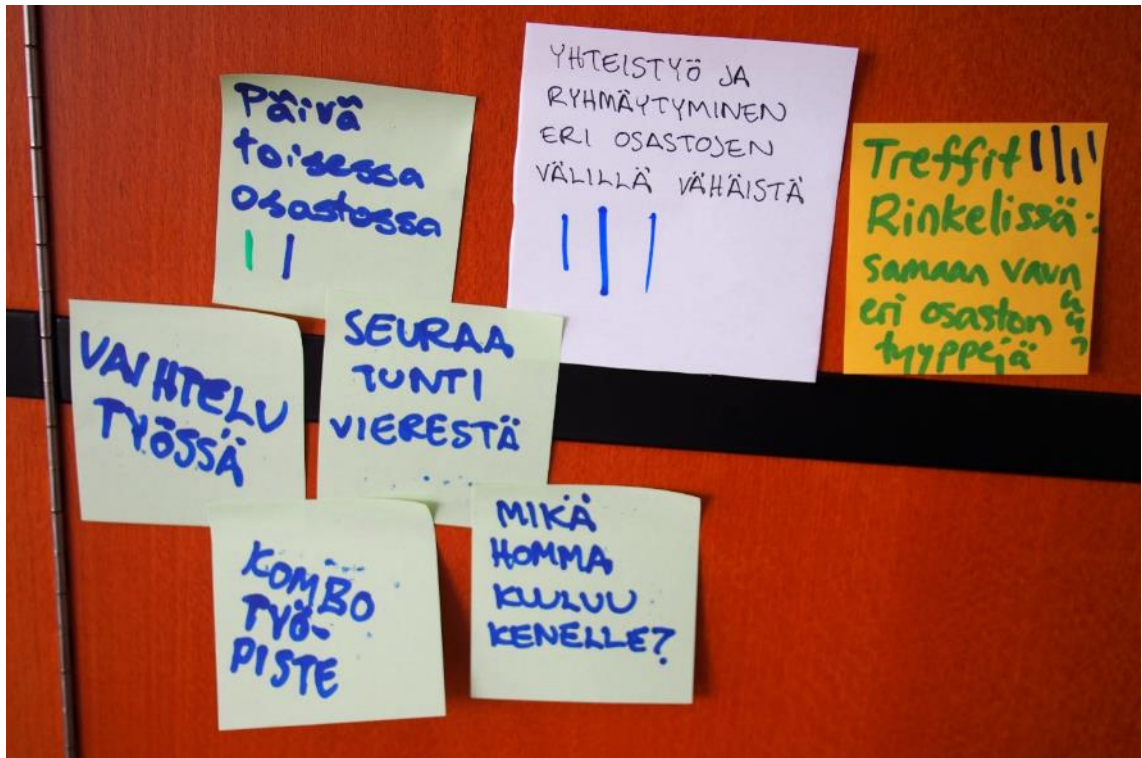 Päivä
toisessa
osastossa
YHTEISTYÖ JA
RYHMÄYTYMINEN
ERI OSASTOJEN
VÄLILLÄ VÄHÄISTÄ
Treffit
Rinkelissä:
samaan
eri osaston
tyyppejä
VAIHTELU
TYÖSSÄ
SEURAA
TUNTI
VIERESTÄ
KOMBO
TYÖ-
PISTE
MIKÄ
HOMMA
KUULUU
KENELLE?